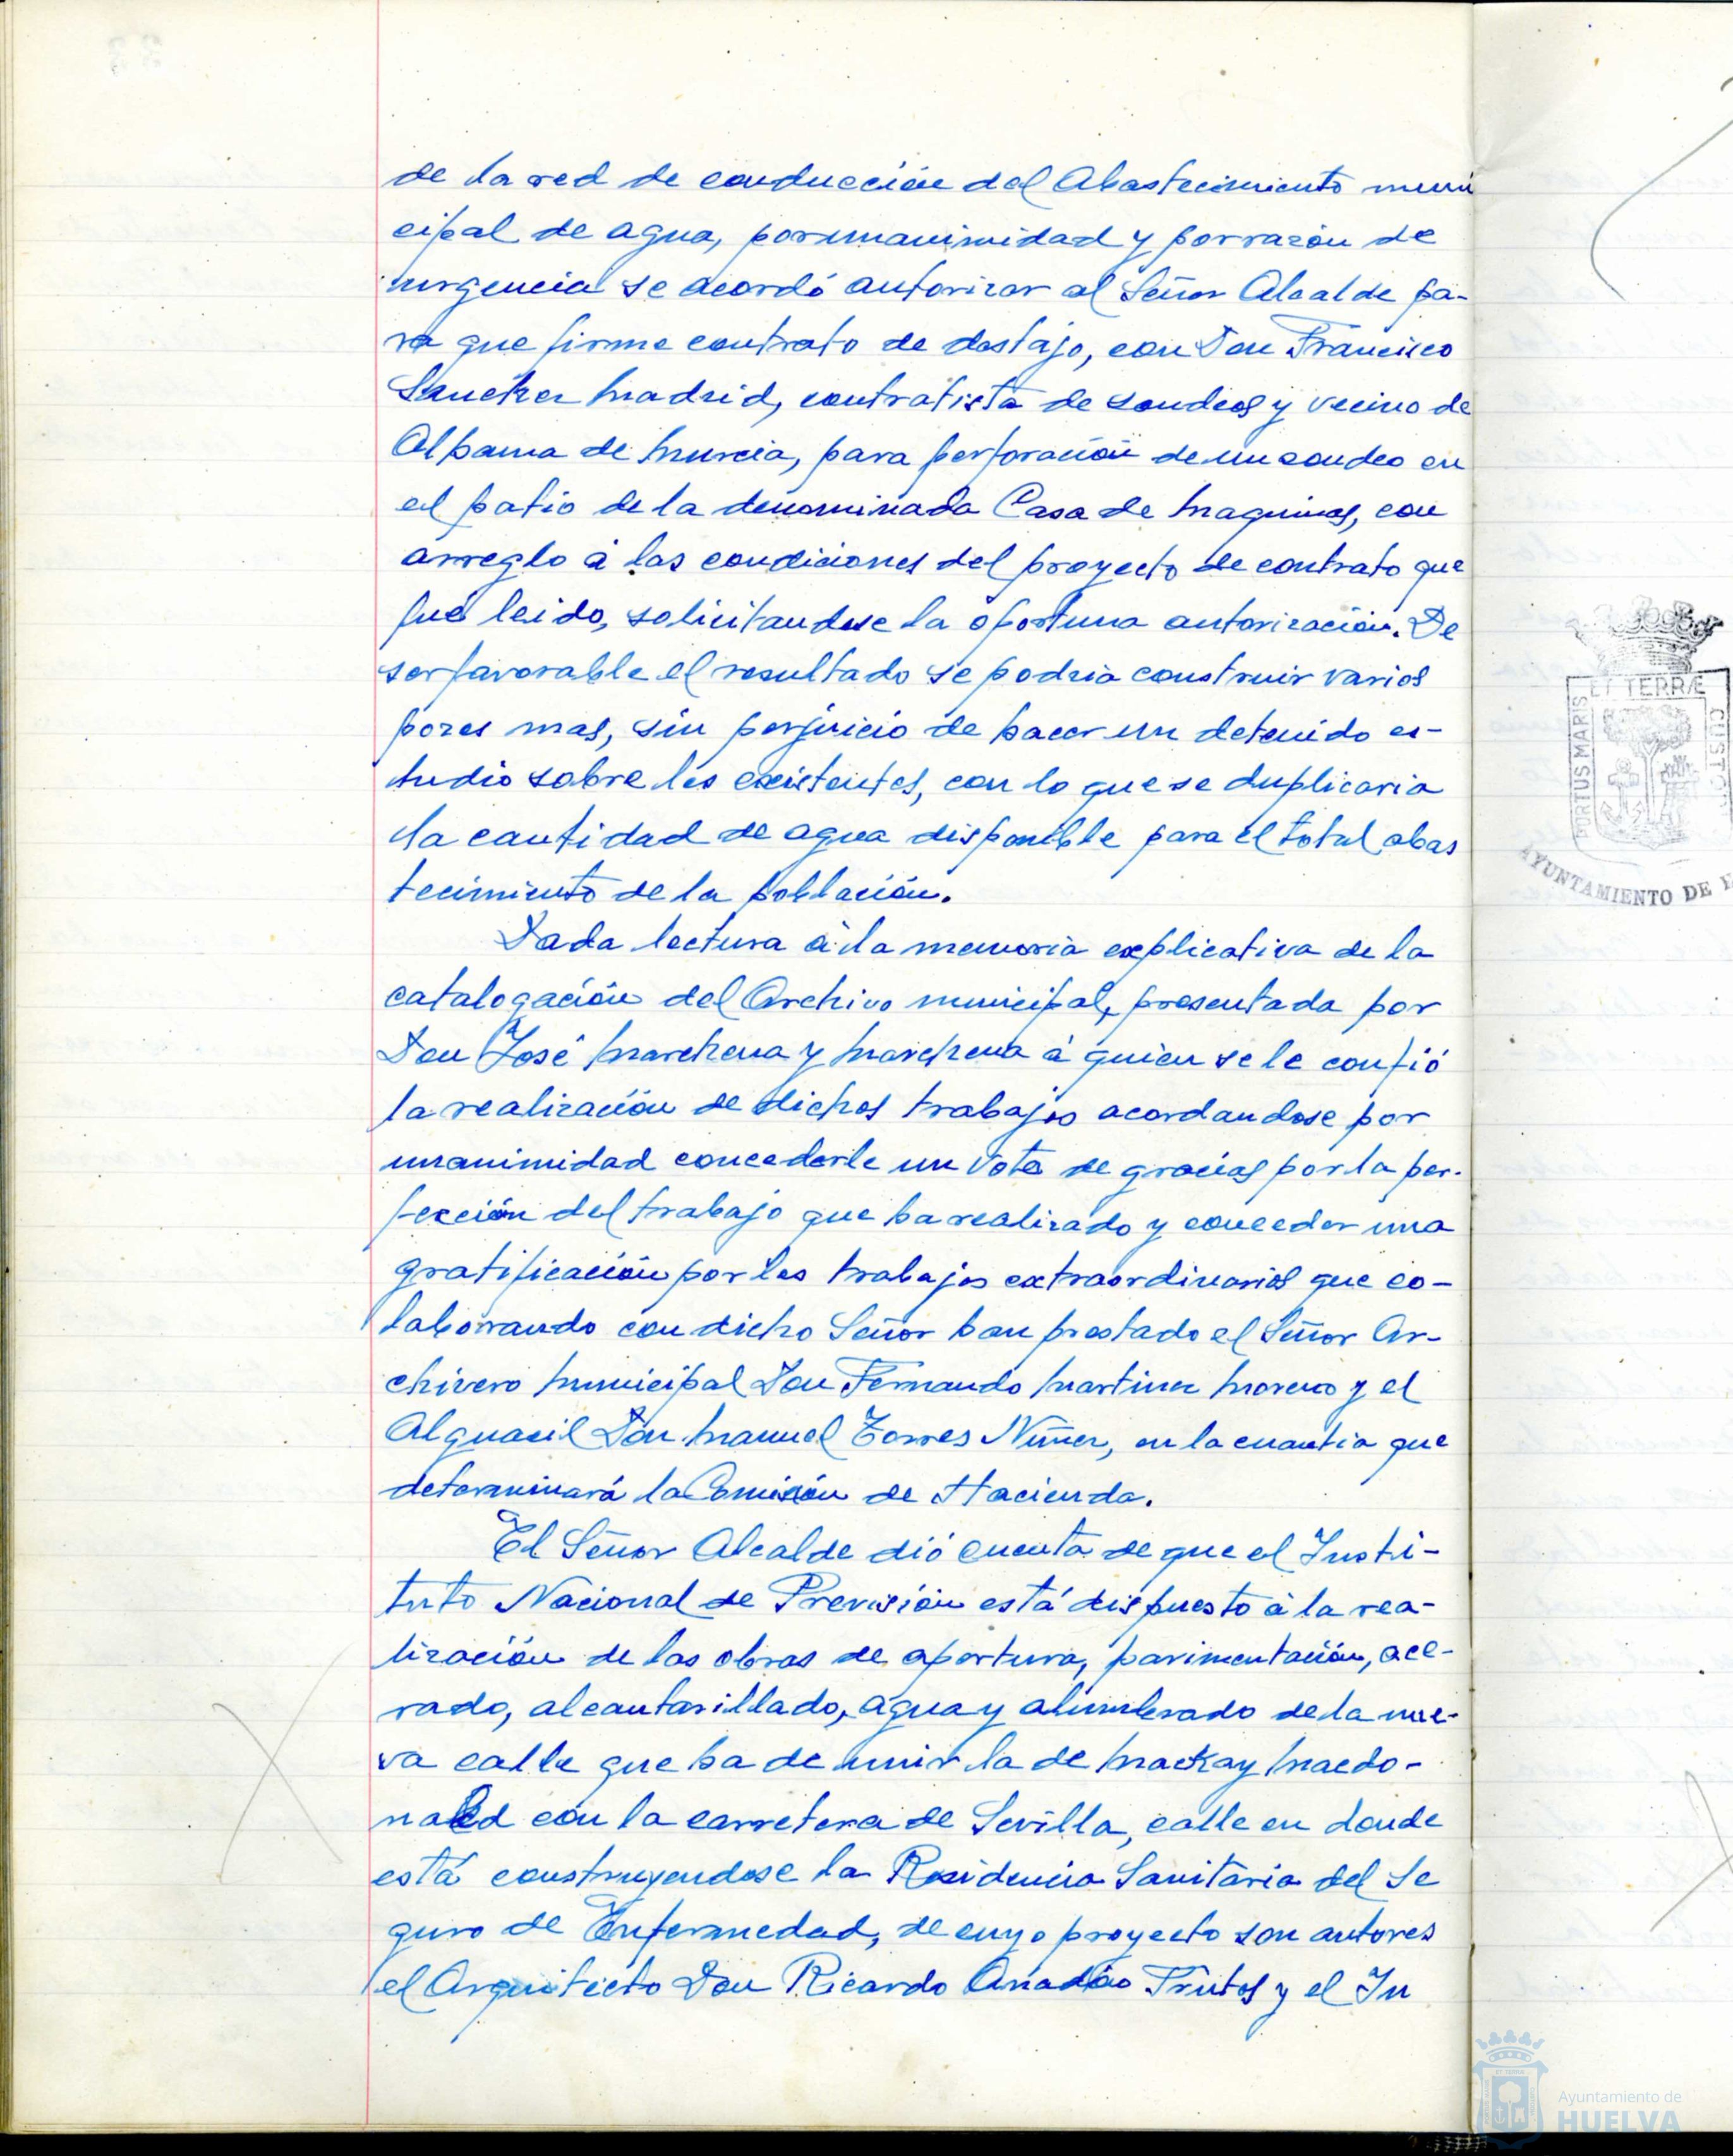 de la red de conducción del Abastecimiento muni
cipal de agua, por unanimidad y por razón de
urgencia se acordó autorizar al Señor Alcalde pa-
ra que firme contrato de destajo, con Don Francisco
Sanchez Madrid, contratista de sondeos y vecino de
Alhama de Murcia, para perforación de un sondeo en
el patio de la denominada Casa de Maquinas, con
arreglo á las condiciones del proyecto de contrato que
fué leido, solicitandose la oportuna autorización. De
ser favorable el resultado se podria construir varios
pozos mas, sin perjuicio de hacer un detenido es-
tudio sobre los existentes, con lo que se duplicaria
la cantidad de agua disponible para el total abas
tecimiento de la población.
Dada lectura á la memoria explicativa de la
catalogación del Archivo municipal, presentada por
Don José Marchena y Marchena á quien se le confió
la realización de dichos trabajos acordandose por
unanimidad concederle un voto de gracias por la per-
fección del trabajo que ha realizado y conceder una
gratificación por los trabajos extraordinarios que co-
laborando con dicho Señor han prestado el Señor Ar-
chivero Municipal Don Fernando Martinez Moreno y el
Alguacil Don Manuel Torres Nuñez, en la cuantia que
determinará la Comisión de Hacienda.
El Señor Alcalde dió cuenta de que el Insti-
tuto Nacional de Previsión está dispuesto á la rea-
lización de las obras de apertura, pavimentación, ace-
rado, alcantarillado, agua y alumbrado de la nue-
va calle que ha de unir la de Mackay Macdo-
nald con la carretera de Sevilla, calle en donde
está construyendose la Residencia Sanitaria del Se
guro de Enfermedad, de cuyo proyecto son autores
el Arquitecto Don Ricardo Anadón Frutos y el In
ET TERRÆ
PORTUS MARIS
CUSTO
AYUNTAMIENTO DE
Ayuntamiento de
HUELVA